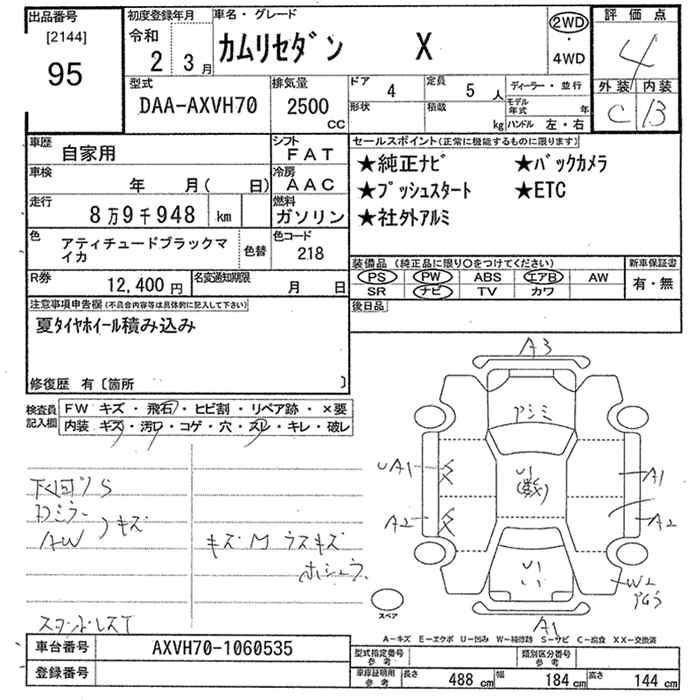 出品番号
[2144]
95
初度登録年月
令和
2 3月
車名・グレード
カムリセダン X
2WD
・
4WD
評価点
4
外装 内装
C B
型式
DAA-AXVH70
排気量
2500 CC
ドア 4
定員 5人
ディーラー・並行
形状
積載 kg
モデル年式 年
ハンドル 左・右
車歴 自家用
シフト FAT
車検 年 月( 日)
冷房 AAC
走行 8万9千948 km
燃料 ガソリン
色 アティチュードブラックマイカ
色替
色コード 218
R券 12,400円
名変通知期限 月 日
セールスポイント(正常に機能するものに限ります)
★純正ナビ ★バックカメラ
★プッシュスタート ★ETC
★社外アルミ
装備品 (純正品に限り○をつけてください)
新車保証書
PS PW ABS エアB AW
SR ナビ TV カワ
有・無
後日品
注意事項申告欄(不具合内容等は具体的に記入して下さい)
夏タイヤホイール積み込み
修復歴 有〔箇所 〕
検査員記入欄
FW キズ・飛石・ヒビ割・リペア跡・×要
内装 キズ・汚れ・コゲ・穴・スレ・キレ・破レ
下回りS
Dミラー
AW
キズ
キズM ラスキズ
ホシュウ
A3
アシミ
UA1
A2
A1
A2
W2
A1
スペア
A-キズ E-エクボ U-凹み W-補修跡 S-サビ C-腐食 XX-交換済
車台番号 AXVH70-1060535
登録番号
型式指定番号 参考
類別区分番号 参考
車庫証明用 参考
長さ 488 cm 幅 184 cm 高さ 144 cm